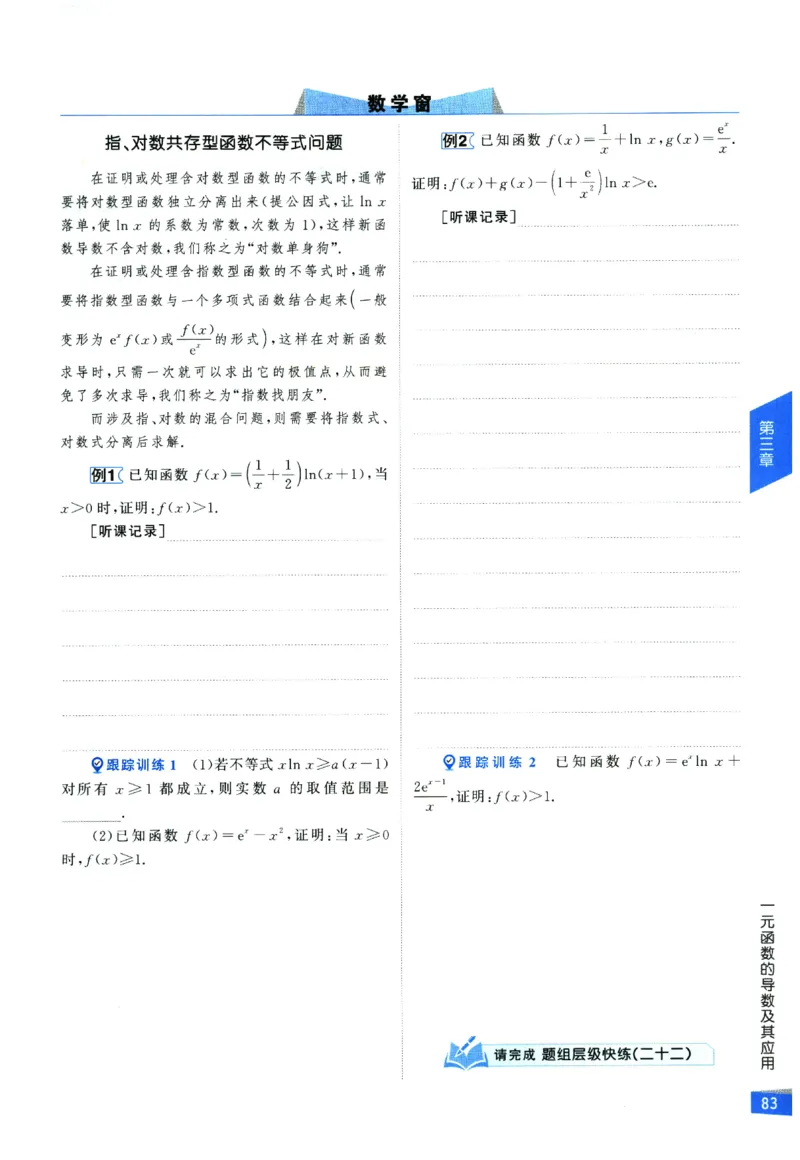 数学窗
指、对数共存型函数不等式问题
在证明或处理含对数型函数的不等式时,通常
要将对数型函数独立分离出来(提公因式,让 ln x
落单,使 ln x 的系数为常数,次数为 1),这样新函
数导数不含对数,我们称之为“对数单身狗”.
在证明或处理含指数型函数的不等式时,通常
要将指数型函数与一个多项式函数结合起来(一般
变形为 eˣf(x)或 f(x)/eˣ 的形式),这样在对新函数
求导时,只需一次就可以求出它的极值点,从而避
免了多次求导,我们称之为“指数找朋友”.
而涉及指、对数的混合问题,则需要将指数式、
对数式分离后求解.
例1 已知函数 f(x)=(1/x+1/2)ln(x+1),当
x>0 时,证明:f(x)>1.
[听课记录]
跟踪训练 1 (1)若不等式 xln x≥a(x-1)
对所有 x≥1 都成立,则实数 a 的取值范围是
________.
(2)已知函数 f(x)=eˣ-x²,证明:当 x≥0
时,f(x)≥1.
例2 已知函数 f(x)=1/x+ln x,g(x)=eˣ/x.
证明:f(x)+g(x)-(1+e/x²)ln x>e.
[听课记录]
跟踪训练 2 已知函数 f(x)=eˣln x+
2eˣ⁻¹/x,证明:f(x)>1.
请完成 题组层级快练(二十二)
第三章
一元函数的导数及其应用
83